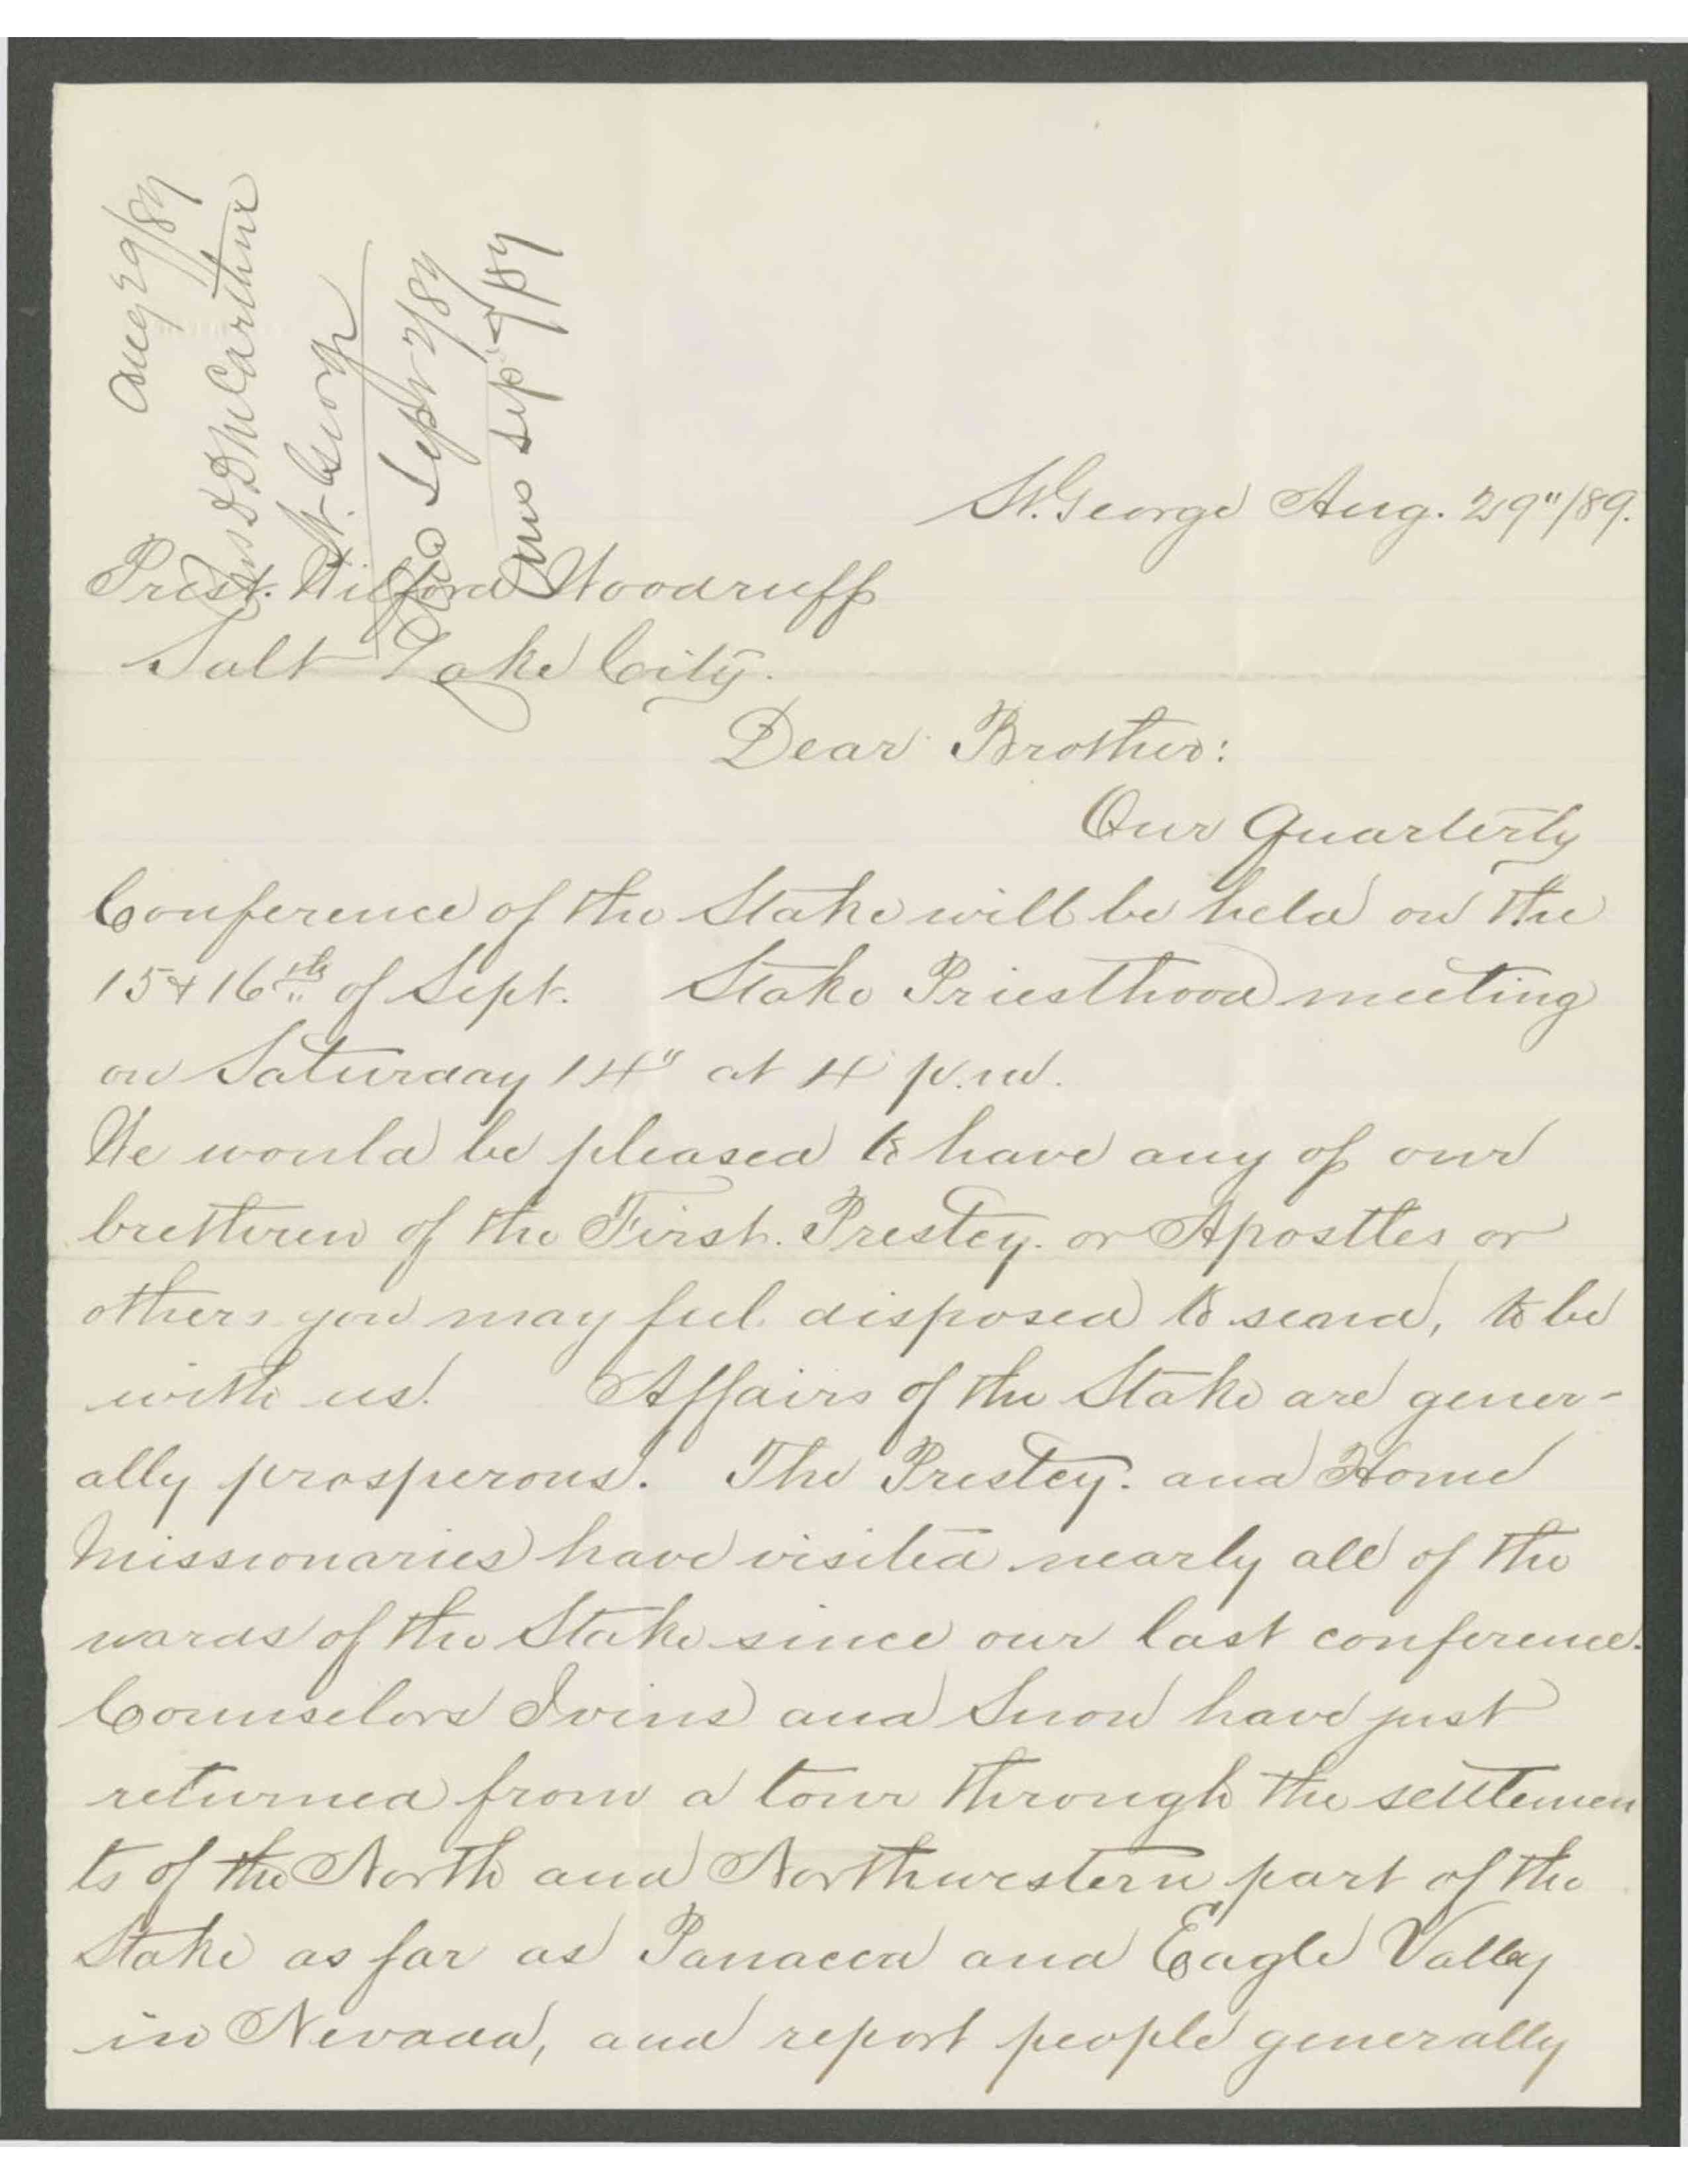 Aug 29/89
Pres D D McCarthur
St. George
Rec Sept 2/89
Ans Sep 4/89
St. George Aug. 29"/89.
Prest. Wilford Woodruff
Salt Lake City.
Dear Brother:
Our Quarterly
Conference of the Stake will be held on the
15 & 16th of Sept. Stake Priesthood meeting
on Saturday 14" at 4 p.m.
We would be pleased to have any of our
brethren of the First. Prestcy. or Apostles or
others you may feel disposed to send, to be
with us. Affairs of the Stake are gener-
ally prosperous. The Prestcy. and Home
Missionaries have visited nearly all of the
wards of the Stake since our last conference.
Counselors Ivins and Snow have just
returned from a tour through the settlemen
ts of the North and Northwestern part of the
Stake as far as Panacca and Eagle Valley
in Nevada, and report people generally